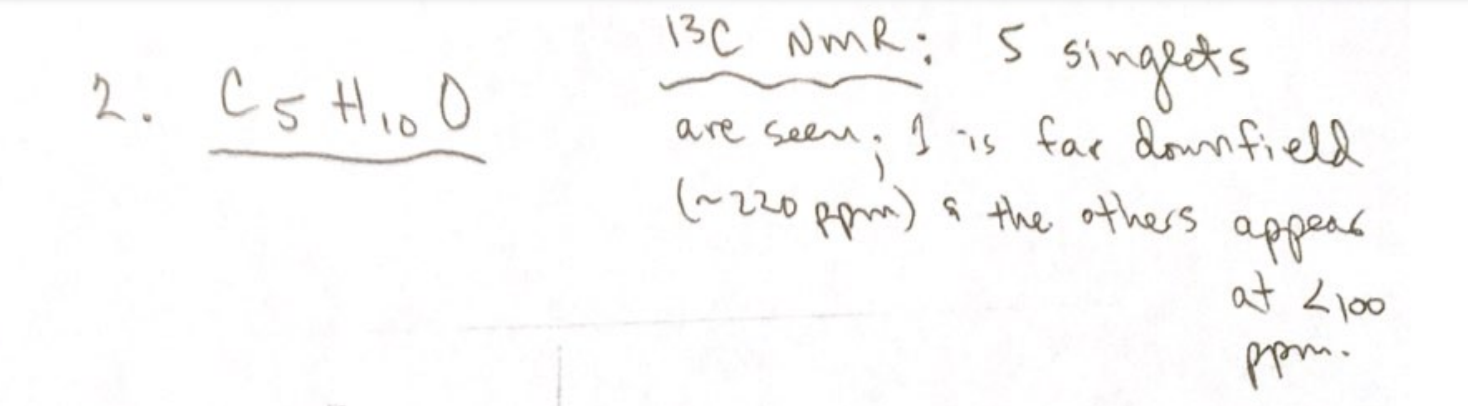 2. C5H10O
13C NMR: 5 singlets
are seen; 1 is far downfield
(~220 ppm) & the others appear
at <100
ppm.